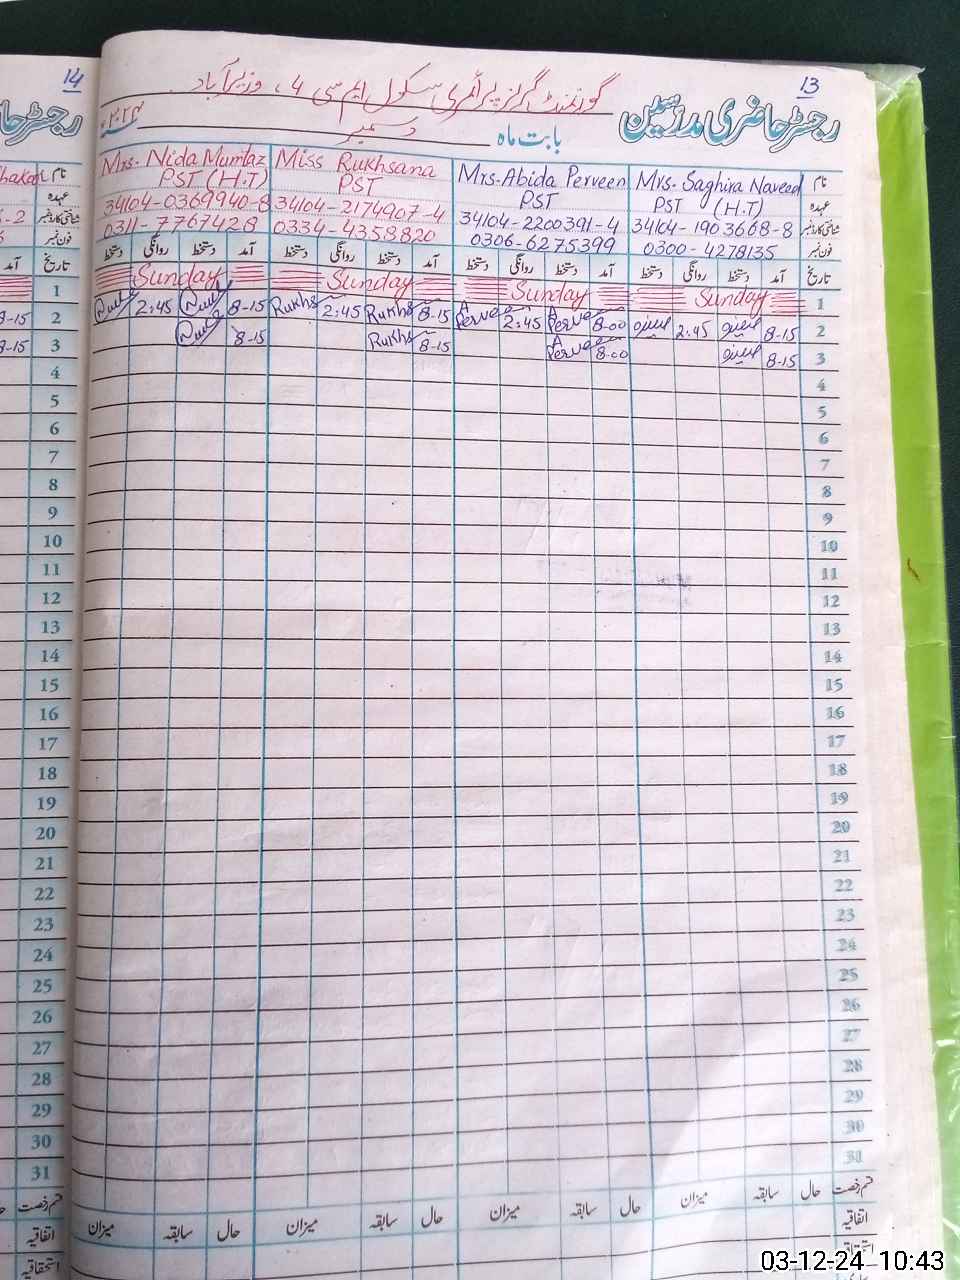 14
13
گورنمنٹ گرلز پرائمری سکول ایم سی 4 ، وزیرآباد
رجسٹر حاضری مدرسین
بابت ماہ دسمبر
نام Mrs. Saghira Naveed Mrs. Abida Perveen Miss Rukhsana Mrs. Nida Mumtaz
عہدہ PST (H.T) PST PST PST (H.T)
شناختی کارڈ نمبر 34104-1903668-8 34104-2200391-4 34104-2174907-4 34104-0369940-8
فون نمبر 0300-4278135 0306-6275399 0334-4358820 0311-7767428
تاریخ آمد دستخط روانگی دستخط آمد دستخط روانگی دستخط آمد دستخط روانگی دستخط آمد دستخط روانگی دستخط
1 Sunday Sunday Sunday Sunday 1
2 8-15 2:45 8-00 Perveen 2:45 Perveen 8-15 Rukhs 2:45 Rukhs 8-15 2:45 2
3 8-15 8-00 Perveen 8-15 Rukhs 8-15 3
4 4
5 5
6 6
7 7
8 8
9 9
10 10
11 11
12 12
13 13
14 14
15 15
16 16
17 17
18 18
19 19
20 20
21 21
22 22
23 23
24 24
25 25
26 26
27 27
28 28
29 29
30 30
31 31
قسم رخصت حال سابقہ میزان حال سابقہ میزان حال سابقہ میزان حال سابقہ میزان قسم رخصت
اتفاقیہ اتفاقیہ
استحقاقیہ استحقاقیہ
03-12-24 10:43